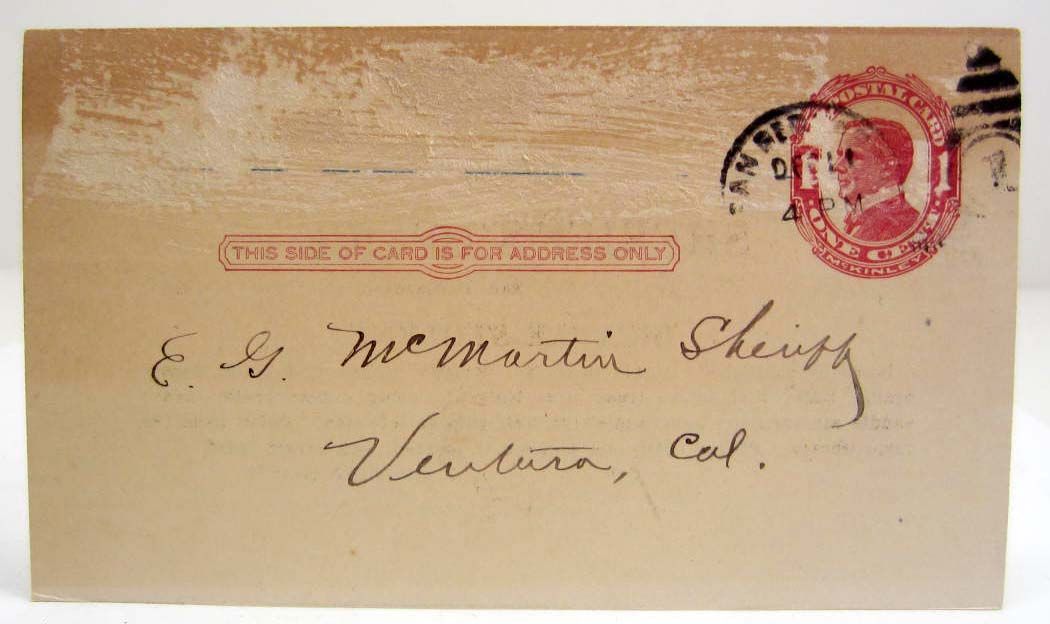 POSTAL CARD
1 1
ONE CENT
McKINLEY
SAN BER
DEC
4 PM
THIS SIDE OF CARD IS FOR ADDRESS ONLY
E. G. McMartin Sheriff
Ventura, Cal.